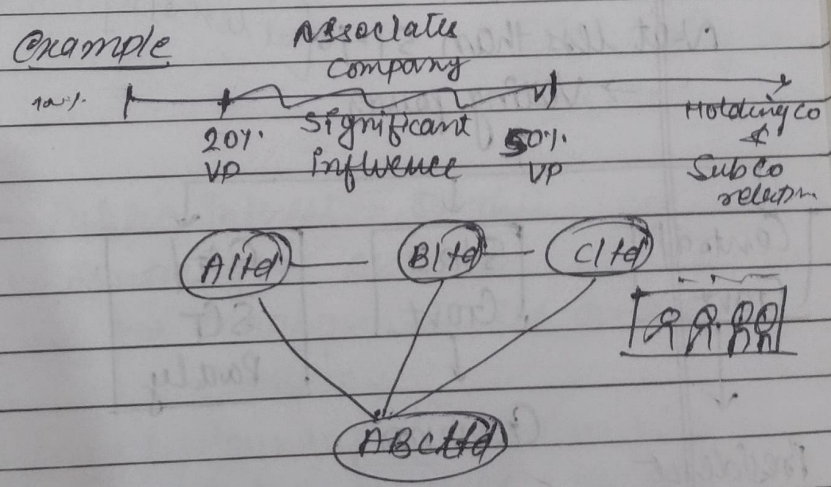 Example
Associates
company
10%
20%
VP
Significant
influence
50%
VP
Holding Co
&
Sub Co
relation
A ltd
B ltd
C ltd
ABC ltd